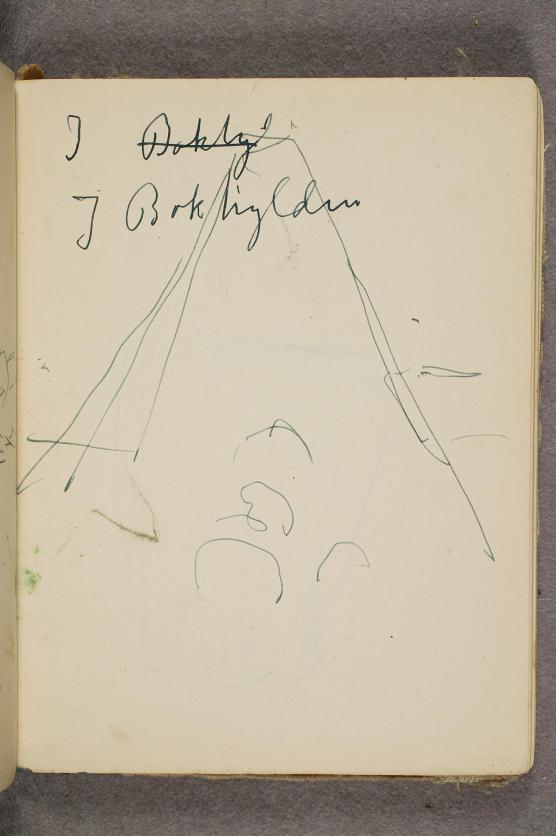 I Bokhyl
I Bokhylden